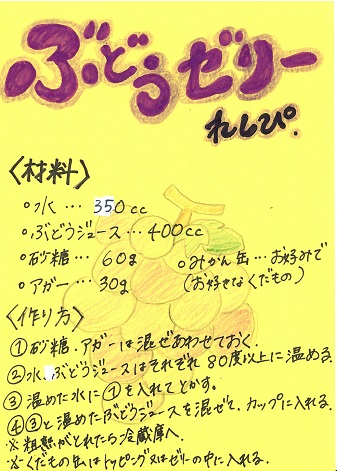 ぶどうゼリー
れしぴ。
〈材料〉
○水…350cc
○ぶどうジュース…400cc
○砂糖…60g
○みかん缶…お好みで
○アガー…30g
(お好きなくだもの)
〈作り方〉
①砂糖、アガーは混ぜあわせておく。
②水、ぶどうジュースはそれぞれ80度以上に温める。
③温めた水に①を入れてとかす。
④③と温めたぶどうジュースを混ぜて、カップに入れる。
※粗熱がとれたら冷蔵庫へ
※くだもの缶はトッピング又はゼリーの中に入れる。